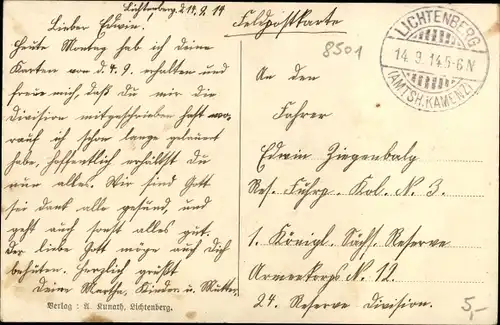 Lichtenberg, d 14.9.14
Lieber Edwin.
Heute Montag hab ich deine
Karten vom d. 4.9. erhalten und
freue mich, daß Du mir die
Division mitgeschrieben hast wo-
rauf ich schon lange gelauert
habe, hoffentlich erhältst Du
nun alles. Wir sind Gott
sei dank alle gesund, und
geht auch sonst alles gut.
Der liebe Gott möge auch Dich
behüten. Herzlich grüßt
Deine Martha, Kinder u. Mutter.
Verlag: A. Kunath, Lichtenberg.
Feldpostkarte
8501
LICHTENBERG
14.9.14.5-6N
(AMTSH. KAMENZ)
An den
Fahrer
Edwin Ziegenbalg
Res. Fuhrp. Kol. N. 3.
1. Königl. Sächs. Reserve
Armeekorps N. 12.
24. Reserve Division.
5,-